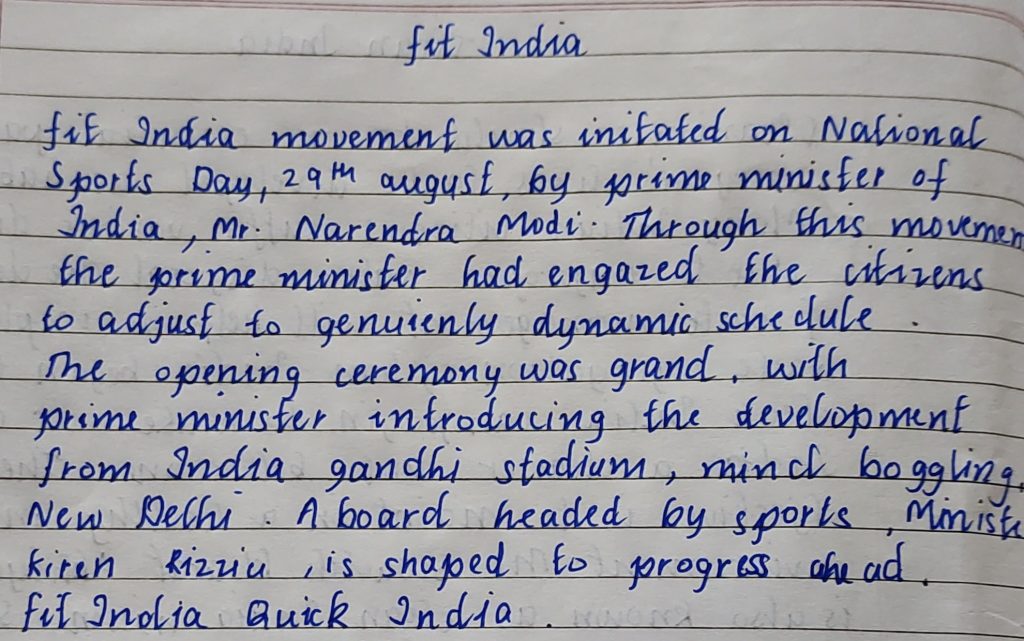 fit India
fit India movement was initated on National
Sports Day, 29th august, by prime minister of
India, Mr. Narendra Modi. Through this movemen
the prime minister had engazed the citizens
to adjust to genuienly dynamic schedule.
The opening ceremony was grand, with
prime minister introducing the development
from India gandhi stadium, mind boggling,
New Delhi. A board headed by sports, Ministe
Kiren Rizziu, is shaped to progress ahead.
fit India Quick India.